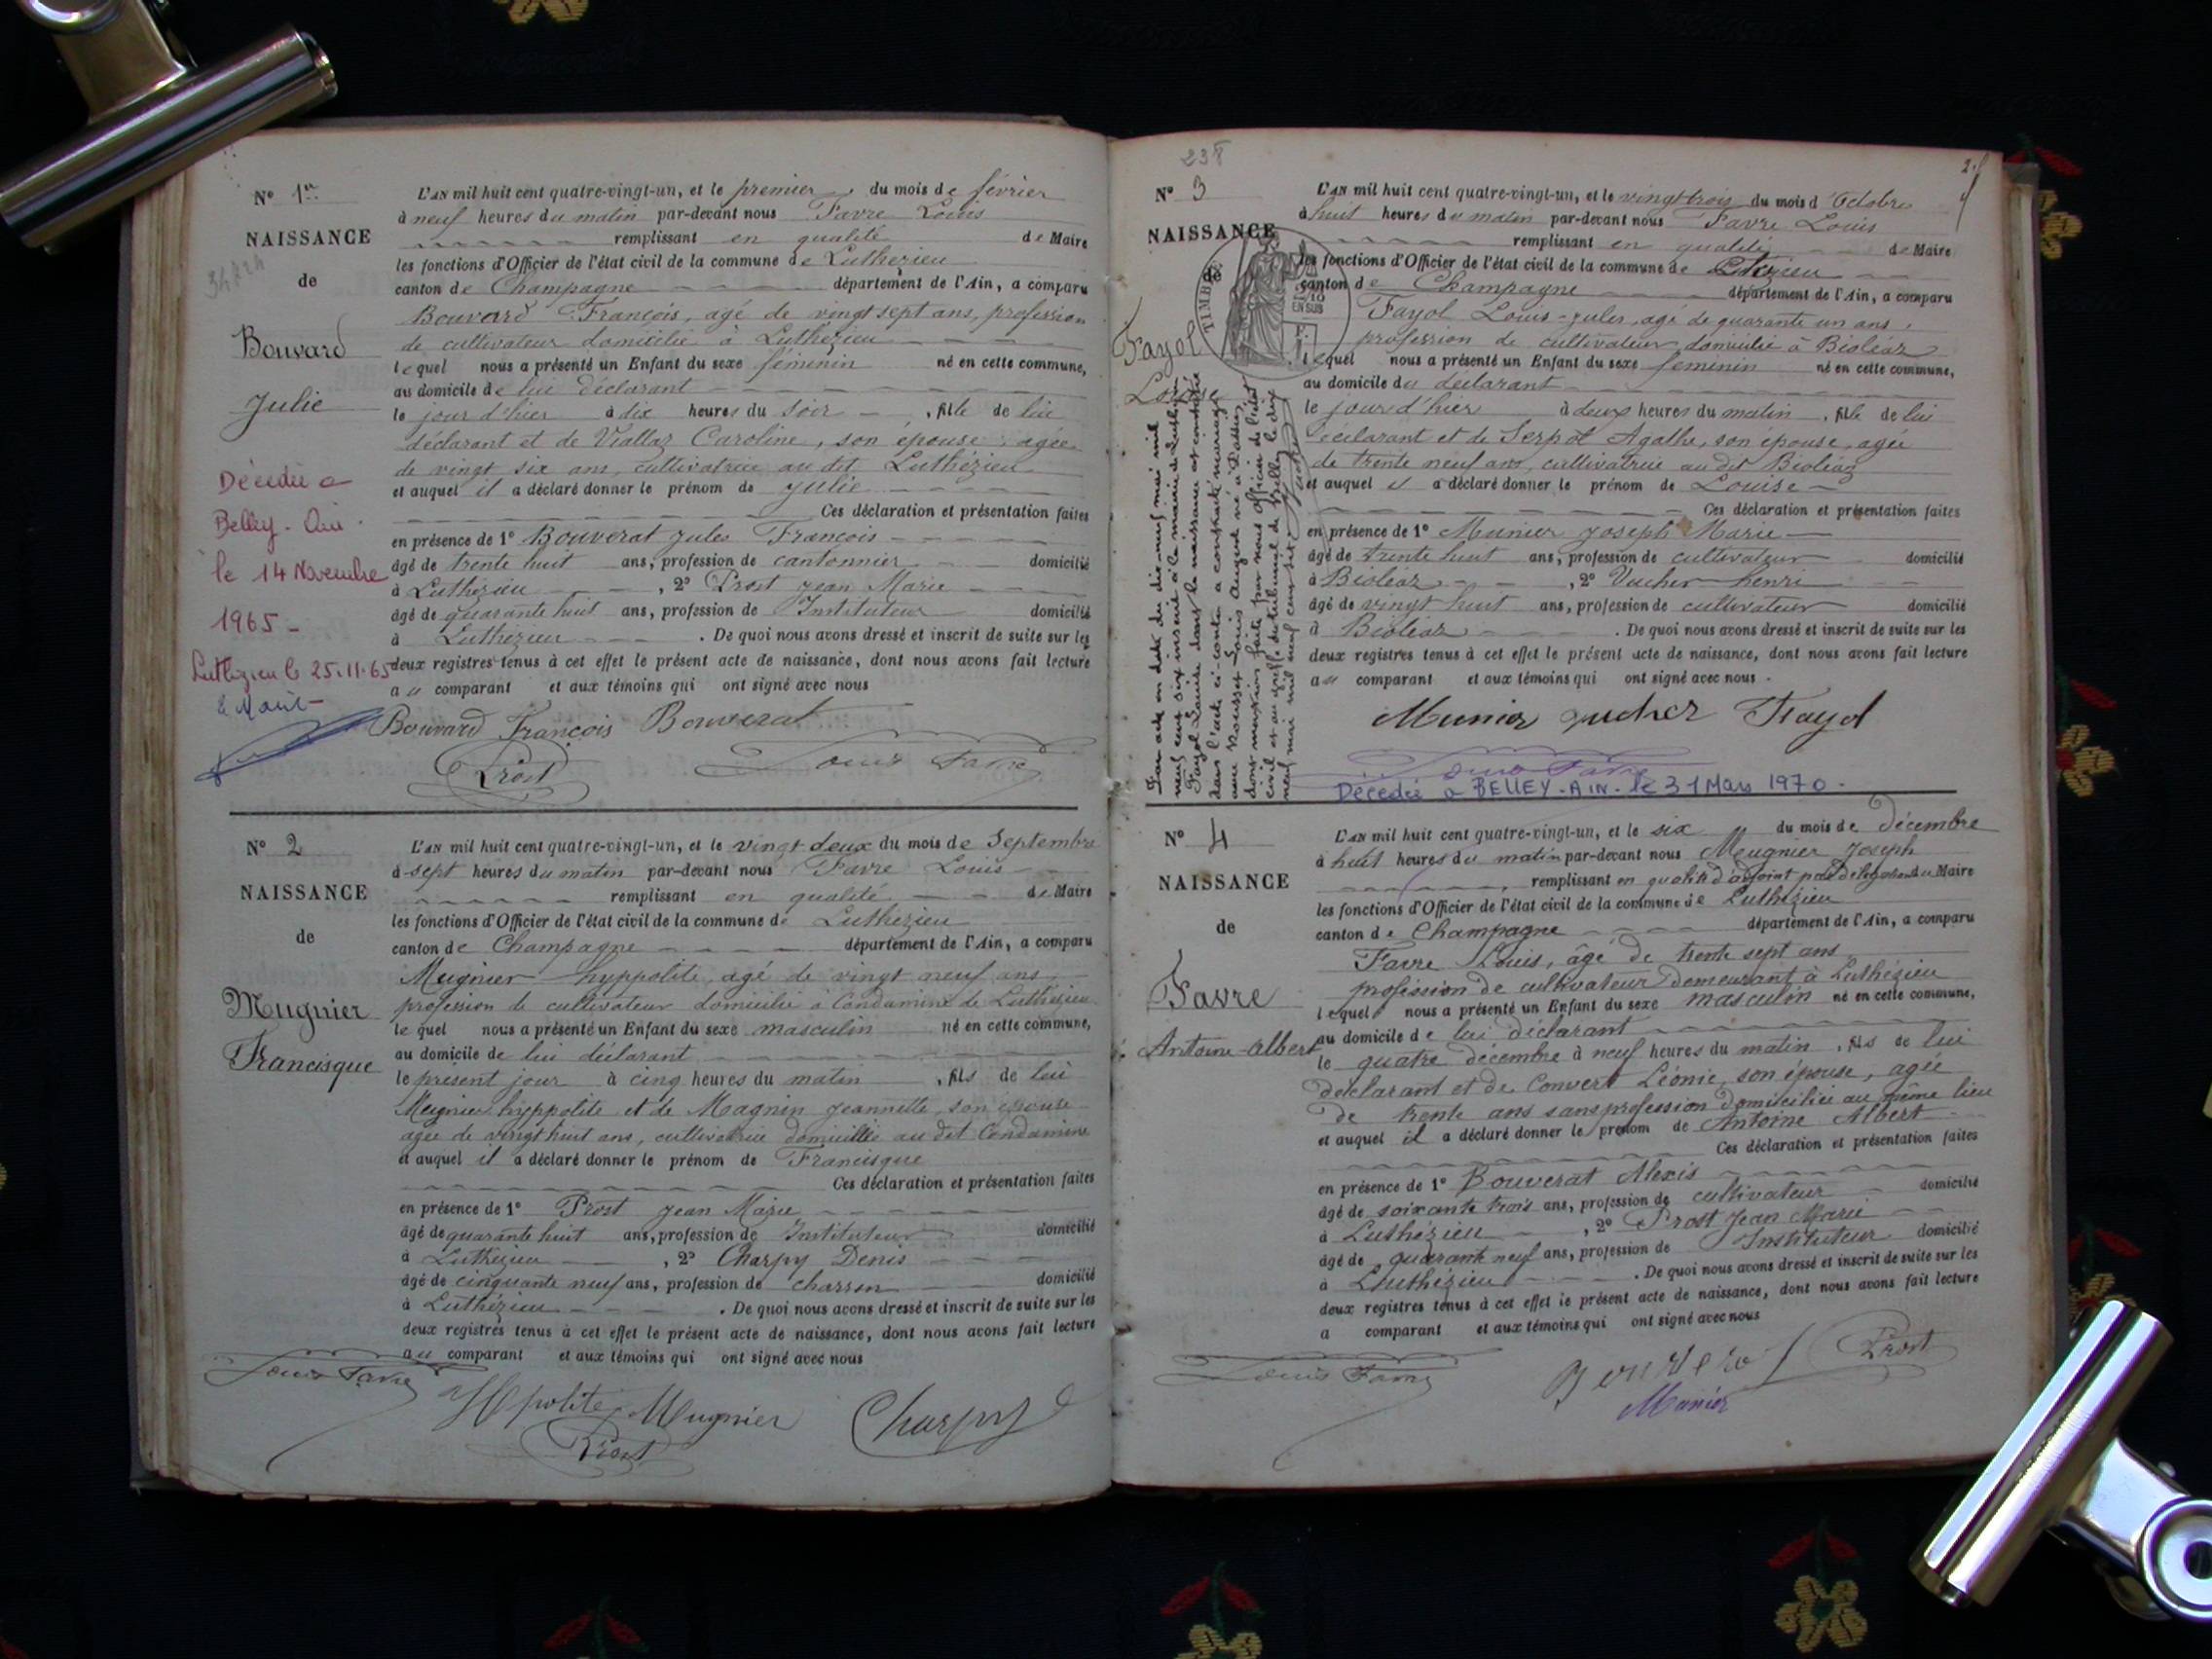 N° 1er
NAISSANCE
de
Bouvard
Julie
Décédée a
Belley - Ain
le 14 Novembre
1965 -
Luthézieu le 25.11.65
L'AN mil huit cent quatre-vingt-un, et le premier du mois de février
à neuf heures du matin par-devant nous Favre Louis
remplissant en qualité de Maire
les fonctions d'Officier de l'état civil de la commune de Luthézieu
canton de Champagne département de l'Ain, a comparu
Bouvard François, agé de vingt sept ans, profession
de cultivateur domicilié à Luthézieu
lequel nous a présenté un Enfant du sexe féminin né en cette commune,
au domicile de lui déclarant
le jour d'hier à dix heures du soir , fille de lui
déclarant et de Viallaz Caroline, son épouse agée
de vingt six ans, cultivatrice au dit Luthézieu
et auquel il a déclaré donner le prénom de Julie
Ces déclaration et présentation faites
en présence de 1° Bouverat Jules François
âgé de trente huit ans, profession de cantonnier domicilié
à Luthézieu , 2° Prost Jean Marie
âgé de quarante huit ans, profession de Instituteur domicilié
à Luthézieu . De quoi nous avons dressé et inscrit de suite sur les
deux registres tenus à cet effet le présent acte de naissance, dont nous avons fait lecture
au comparant et aux témoins qui ont signé avec nous
Bouvard François Bouverat
Prost Louis Favre
N° 2
NAISSANCE
de
Mugnier
Francisque
L'AN mil huit cent quatre-vingt-un, et le vingt deux du mois de Septembre
à sept heures du matin par-devant nous Favre Louis
remplissant en qualité de Maire
les fonctions d'Officier de l'état civil de la commune de Luthézieu
canton de Champagne département de l'Ain, a comparu
Mugnier hyppolite, agé de vingt neuf ans,
profession de cultivateur domicilié à Condamine de Luthézieu
lequel nous a présenté un Enfant du sexe masculin né en cette commune,
au domicile de lui déclarant
le présent jour à cinq heures du matin , fils de lui
Mugnier hyppolite et de Magnin Jeannette, son épouse
agée de vingt huit ans, cultivatrice domiciliée au dit Condamine
et auquel il a déclaré donner le prénom de Francisque
Ces déclaration et présentation faites
en présence de 1° Prost Jean Marie
âgé de quarante huit ans, profession de Instituteur domicilié
à Luthézieu , 2° Charpy Denis
âgé de cinquante neuf ans, profession de charron domicilié
à Luthézieu . De quoi nous avons dressé et inscrit de suite sur les
deux registres tenus à cet effet le présent acte de naissance, dont nous avons fait lecture
au comparant et aux témoins qui ont signé avec nous
Louis Favre Hpolite Mugnier Charpy
Prost
N° 3
NAISSANCE
de
Fayol
Louise
TIMBRE
EN SUS
L'AN mil huit cent quatre-vingt-un, et le vingt trois du mois d'Octobre
à huit heures du matin par-devant nous Favre Louis
remplissant en qualité de Maire
les fonctions d'Officier de l'état civil de la commune de
canton de Champagne département de l'Ain, a comparu
Fayol Louis-Jules, agé de quarante un ans,
profession de cultivateur domicilié à Bioléaz
lequel nous a présenté un Enfant du sexe féminin né en cette commune,
au domicile du déclarant
le jour d'hier à deux heures du matin , fille de lui
déclarant et de Serpot Agathe, son épouse, agée
de trente neuf ans, cultivatrice au dit Bioléaz
et auquel il a déclaré donner le prénom de Louise
Ces déclaration et présentation faites
en présence de 1° Munier Joseph Marie
âgé de trente huit ans, profession de cultivateur domicilié
à Bioléaz , 2° Vucher henri
âgé de vingt huit ans, profession de cultivateur domicilié
à Bioléaz . De quoi nous avons dressé et inscrit de suite sur les
deux registres tenus à cet effet le présent acte de naissance, dont nous avons fait lecture
au comparant et aux témoins qui ont signé avec nous
Munier Vucher Fayol
Louis Favre
Décédée a BELLEY - AIN - le 31 Mars 1970 -
Par acte en date du dix-neuf mai mil
neuf cent six inscrit à la mairie de
Fayol Louise dont la naissance est constatée
dans l'acte ci-contre a contracté mariage
avec Rousset Louis August né à
dont mention faite par nous officier de l'état
civil et au greffe du tribunal de Belley le dix
neuf mai mil neuf cent six
N° 4
NAISSANCE
de
Favre
Antoine-Albert
L'AN mil huit cent quatre-vingt-un, et le six du mois de décembre
à huit heures du matin par-devant nous Meugnier Joseph
remplissant en qualité d'adjoint par délégation du Maire
les fonctions d'Officier de l'état civil de la commune de Luthézieu
canton de Champagne département de l'Ain, a comparu
Favre Louis, âgé de trente sept ans
profession de cultivateur demeurant à Luthézieu
lequel nous a présenté un Enfant du sexe masculin né en cette commune,
au domicile de lui déclarant
le quatre décembre à neuf heures du matin , fils de lui
déclarant et de Convert Léonie, son épouse, agée
de trente ans sans profession domiciliée au même lieu
et auquel il a déclaré donner le prénom de Antoine Albert
Ces déclaration et présentation faites
en présence de 1° Bouverat Alexis
âgé de soixante trois ans, profession de cultivateur domicilié
à Luthézieu , 2° Prost Jean Marie
âgé de quarante neuf ans, profession de Instituteur domicilié
à Luthézieu . De quoi nous avons dressé et inscrit de suite sur les
deux registres tenus à cet effet le présent acte de naissance, dont nous avons fait lecture
a comparant et aux témoins qui ont signé avec nous
Louis Favre Prost
Munier